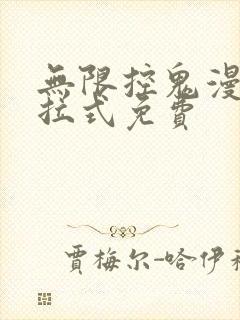 無限控鬼漫
拉式免費
賈梅尔-哈伊